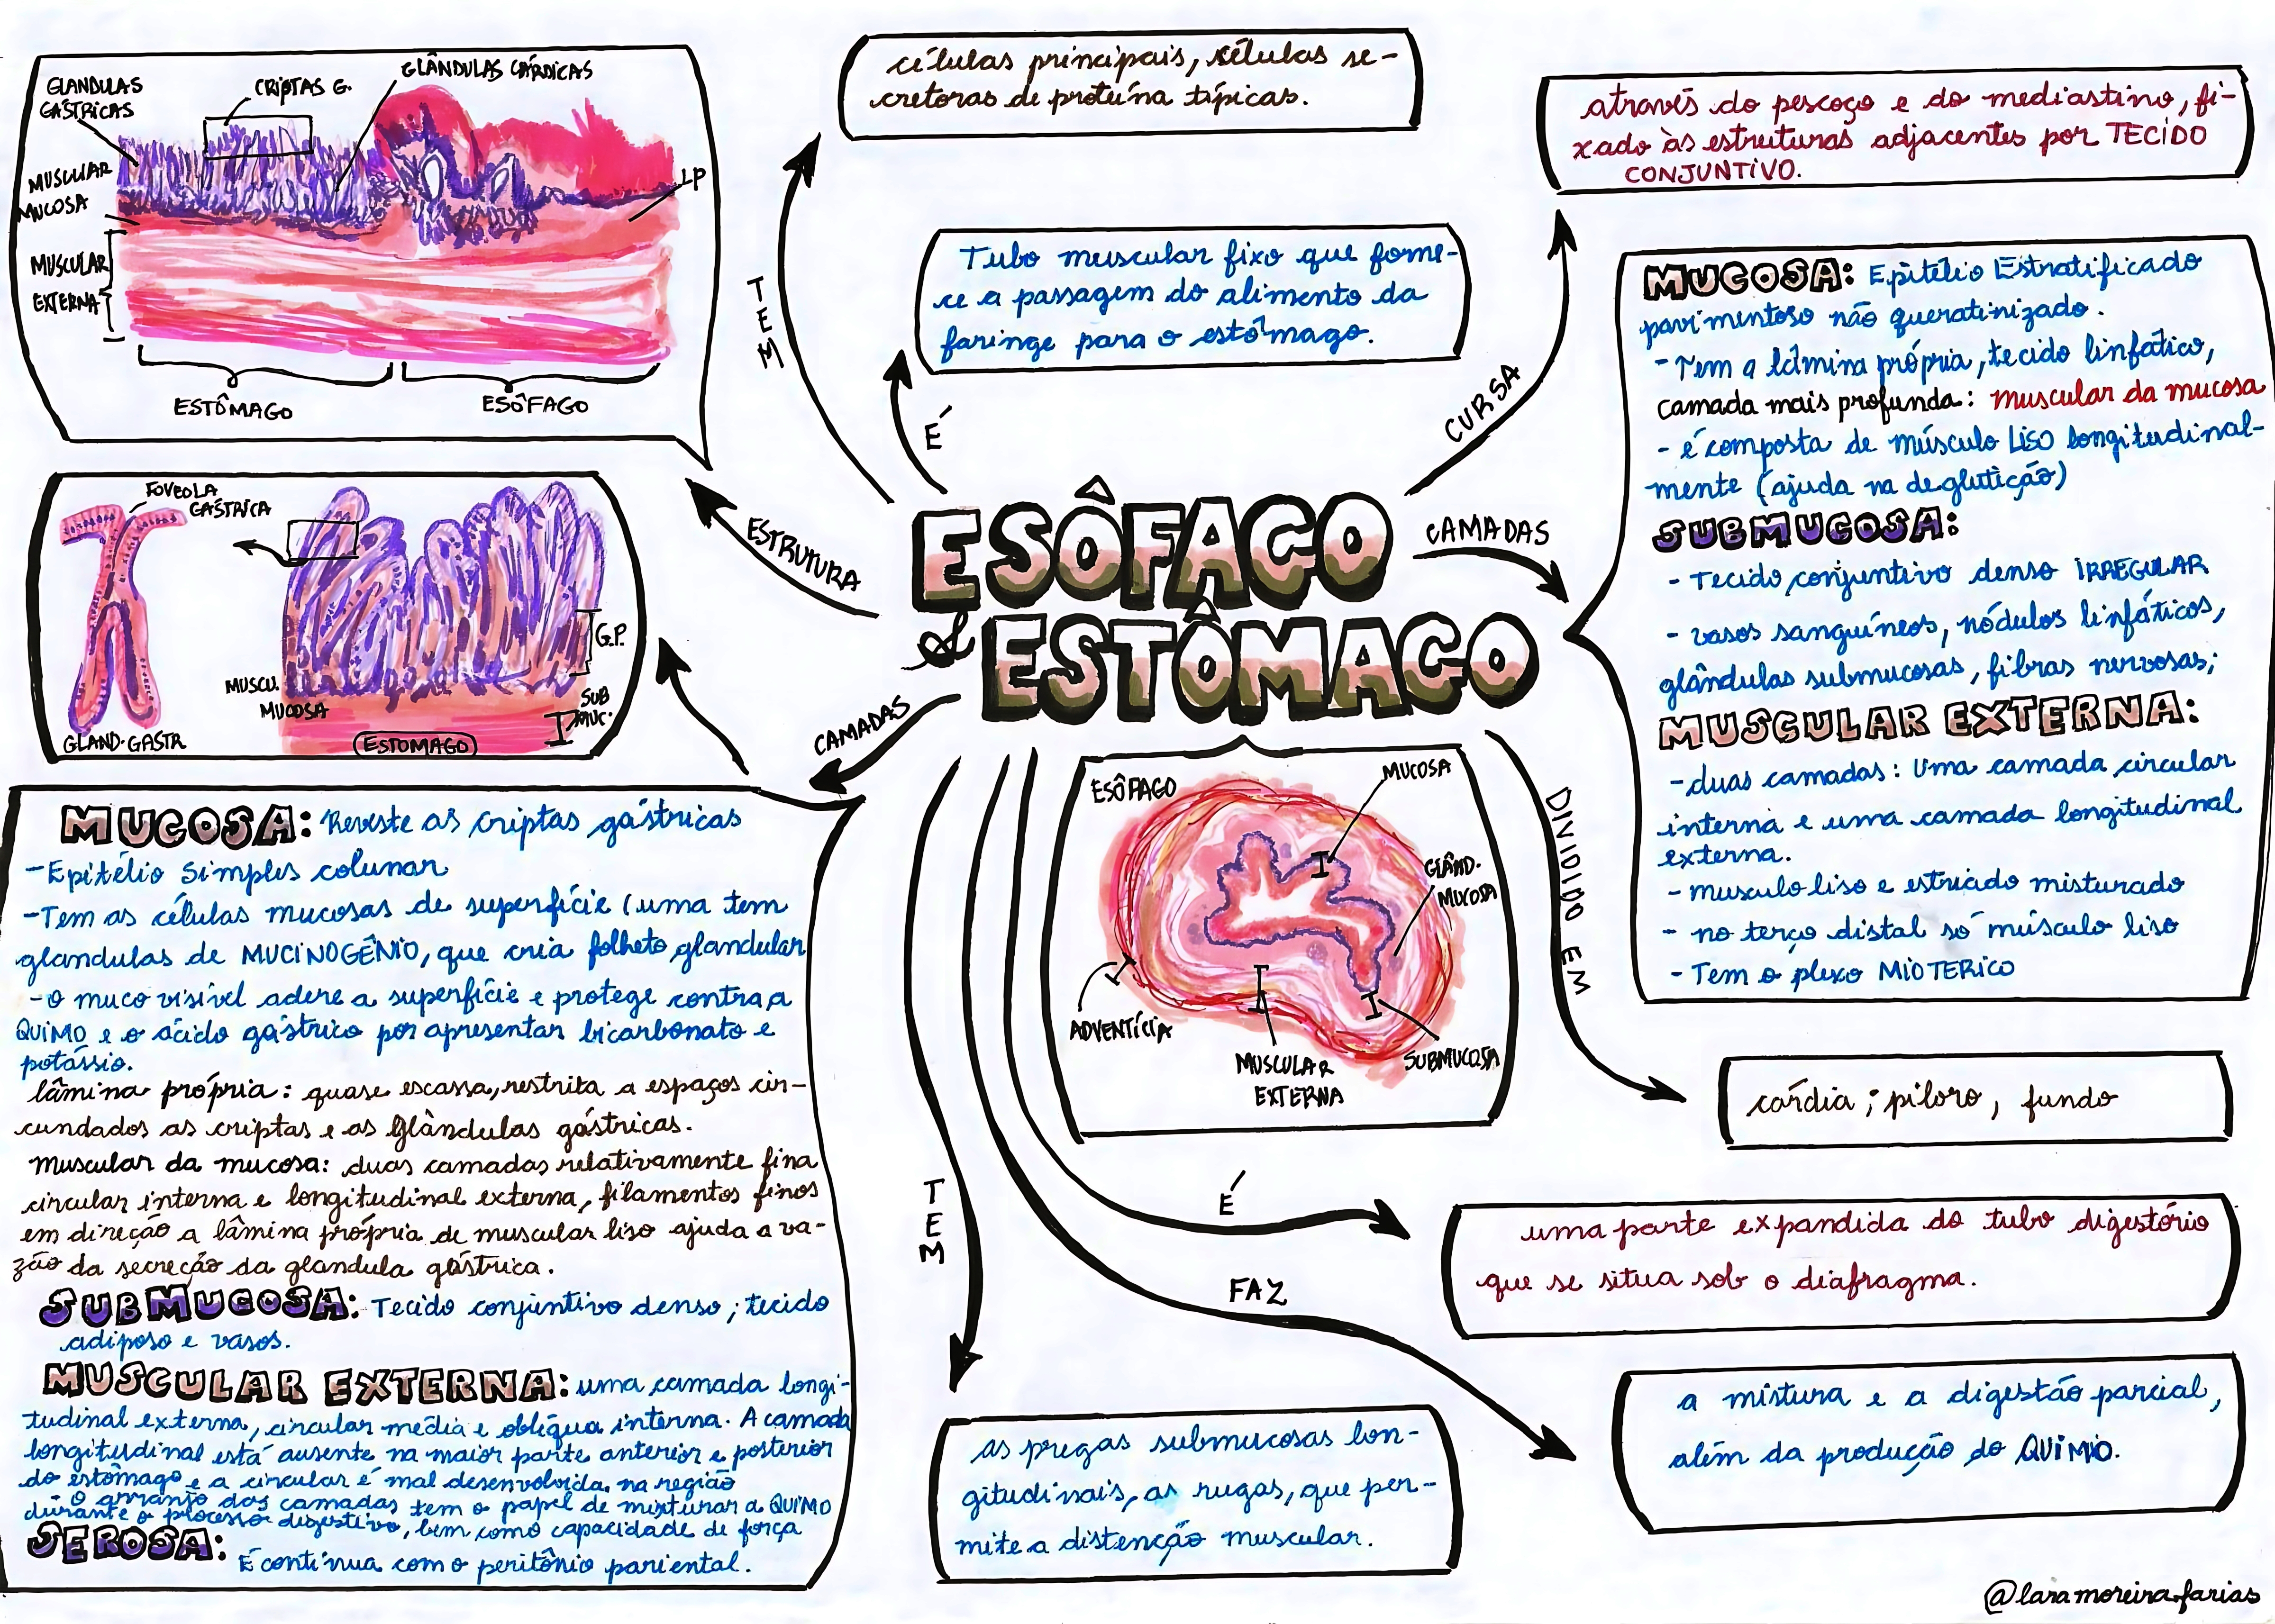 GLANDULAS
GÁSTRICAS
CRIPTAS G.
GLÂNDULAS CÁRDICAS
MUSCULAR
MUCOSA
LP
MUSCULAR
EXTERNA
ESTÔMAGO
ESÔFAGO
células principais, células se-
cretoras de proteína típicas.
através do pescoço e do mediastino, fi-
xado às estruturas adjacentes por TECIDO
CONJUNTIVO.
TEM
Tubo muscular fixo que forne-
ce a passagem do alimento da
faringe para o estômago.
É
CURSA
ESTRUTURA
ESÔFAGO
& ESTÔMAGO
CAMADAS
MUCOSA: Epitélio Estratificado
pavimentoso não queratinizado.
- Tem a lâmina própria, tecido linfático,
camada mais profunda: muscular da mucosa
- é composta de músculo LISO longitudinal-
mente (ajuda na deglutição)
SUBMUCOSA:
- Tecido conjuntivo denso IRREGULAR
- vasos sanguíneos, nódulos linfáticos,
glândulas submucosas, fibras nervosas;
MUSCULAR EXTERNA:
- duas camadas: Uma camada circular
interna e uma camada longitudinal
externa.
- musculo liso e estriado misturado
- no terço distal só músculo liso
- Tem o plexo MIOTERICO
FOVEOLA
GÁSTRICA
G.P.
MUSCU.
MUCOSA
SUB
MUC.
GLAND. GASTR
ESTOMAGO
CAMADAS
MUCOSA: Reveste as criptas gástricas
- Epitélio Simples colunar
- Tem as células mucosas de superfície (uma tem
glandulas de MUCINOGÊNIO, que cria folheto glandular
- O muco visível adere a superfície e protege contra a
QUIMO e o ácido gástrico por apresentar bicarbonato e
potássio.
lâmina própria: quase escassa, restrita a espaços cir-
cundados as criptas e as Glândulas gástricas.
Muscular da mucosa: duas camadas relativamente fina
circular interna e longitudinal externa, filamentos finos
em direção a lâmina própria de muscular liso ajuda a va-
zão da secreção da glandula gástrica.
SUBMUCOSA: Tecido conjuntivo denso; tecido
adiposo e vasos.
MUSCULAR EXTERNA: uma camada longi-
tudinal externa, circular média e oblíqua interna. A camada
longitudinal está ausente na maior parte anterior e posterior
do estômago e a circular é mal desenvolvida na região
O arranjo das camadas tem o papel de misturar a QUIMO
durante o processo digestivo, bem como capacidade de força
SEROSA:
É contínua com o peritônio pariental.
ESÔFAGO
MUCOSA
GLÂND.
MUCOSA
ADVENTÍCIA
MUSCULAR
EXTERNA
SUBMUCOSA
DIVIDIDO EM
cárdia; piloro, fundo
É
uma parte expandida do tubo digestório
que se situa sob o diafragma.
FAZ
a mistura e a digestão parcial,
além da produção do QUIMO.
TEM
as pregas submucosas lon-
gitudinais, as rugas, que per-
mite a distenção muscular.
@laramoreirafarias